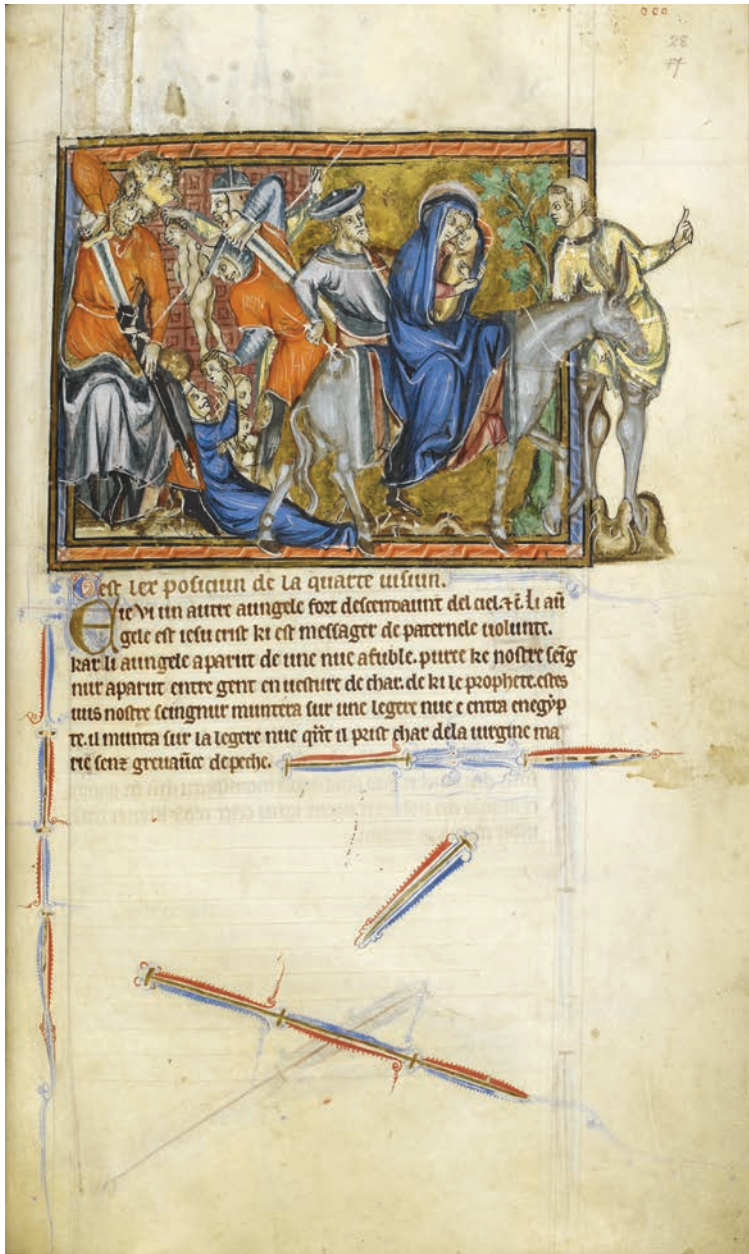 28
17
Cest lex posiciun de la quarte uisiun.
E ie vi un autre aungele fort descendaunt del ciel. ⁊ c̄. li aū
gele est iesu crist ki est messager de paternele uolunte.
kar li aungele aparut de une nue afuble. purce ke nostre seīg
nur aparut entre gent en uesture de char. de ki le prophete. estes
uus nostre seingnur muntera sur une legere nue e entra en egẏp
te. il munta sur la legere nue qn̄t il prist char de la uirgine ma
rie senz greuaūce de peche.